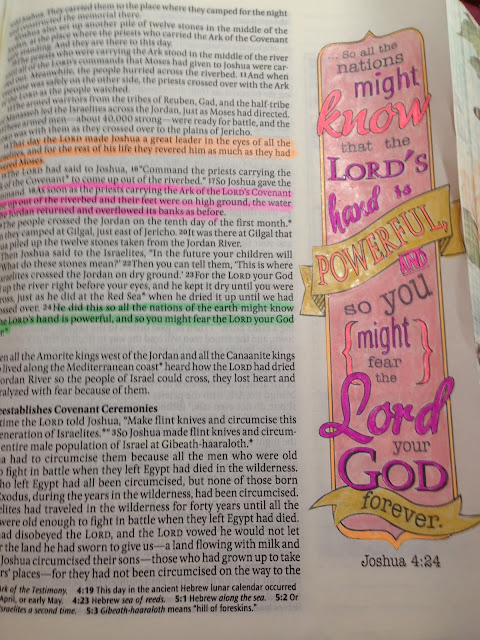 told Joshua. They carried them to the place where they camped for the night
constructed the memorial there.
Joshua also set up another pile of twelve stones in the middle of the
at the place where the priests who carried the Ark of the Covenant
standing. And they are there to this day.
The priests who were carrying the Ark stood in the middle of the river
all of the LORD's commands that Moses had given to Joshua were car-
Meanwhile, the people hurried across the riverbed. 11 And when
everyone was safely on the other side, the priests crossed over with the Ark
LORD as the people watched.
armed warriors from the tribes of Reuben, Gad, and the half-tribe
Manasseh led the Israelites across the Jordan, just as Moses had directed.
armed men—about 40,000 strong—were ready for battle, and the
was with them as they crossed over to the plains of Jericho.
14 That day the LORD made Joshua a great leader in the eyes of all the
and for the rest of his life they revered him as much as they had
revered Moses.
LORD had said to Joshua, 16 "Command the priests carrying
of the Covenant* to come up out of the riverbed." 17 So Joshua gave the
18 As soon as the priests carrying the Ark of the LORD's Covenant
up out of the riverbed and their feet were on high ground, the water
Jordan returned and overflowed its banks as before.
people crossed the Jordan on the tenth day of the first month.*
they camped at Gilgal, just east of Jericho. 20 It was there at Gilgal that
piled up the twelve stones taken from the Jordan River.
Then Joshua said to the Israelites, "In the future your children will
'What do these stones mean?' 22 Then you can tell them, 'This is where
Israelites crossed the Jordan on dry ground.' 23 For the LORD your God
up the river right before your eyes, and he kept it dry until you were
across, just as he did at the Red Sea* when he dried it up until we had
crossed over. 24 He did this so all the nations of the earth might know
the LORD's hand is powerful, and so you might fear the LORD your God
en all the Amorite kings west of the Jordan and all the Canaanite kings
lived along the Mediterranean coast* heard how the LORD had dried
Jordan River so the people of Israel could cross, they lost heart and
paralyzed with fear because of them.
reestablishes Covenant Ceremonies
time the LORD told Joshua, "Make flint knives and circumcise this
generation of Israelites.*" 3 So Joshua made flint knives and circum-
entire male population of Israel at Gibeath-haaraloth.*
a had to circumcise them because all the men who were old
to fight in battle when they left Egypt had died in the wilderness.
who left Egypt had all been circumcised, but none of those born
Exodus, during the years in the wilderness, had been circumcised.
elites had traveled in the wilderness for forty years until all the
were old enough to fight in battle when they left Egypt had died.
had disobeyed the LORD, and the LORD vowed he would not let
the land he had sworn to give us—a land flowing with milk and
Joshua circumcised their sons—those who had grown up to take
rs' places—for they had not been circumcised on the way to the
Ark of the Testimony. 4:19 This day in the ancient Hebrew lunar calendar occurred
April, or early May. 4:23 Hebrew sea of reeds. 5:1 Hebrew along the sea. 5:2 Or
Israelites a second time. 5:3 Gibeath-haaraloth means "hill of foreskins."
... So all the
nations
might
know
that the
LORD'S
hand is
POWERFUL,
AND
so you
{might}
fear
the
Lord
your
GOD
forever.
Joshua 4:24